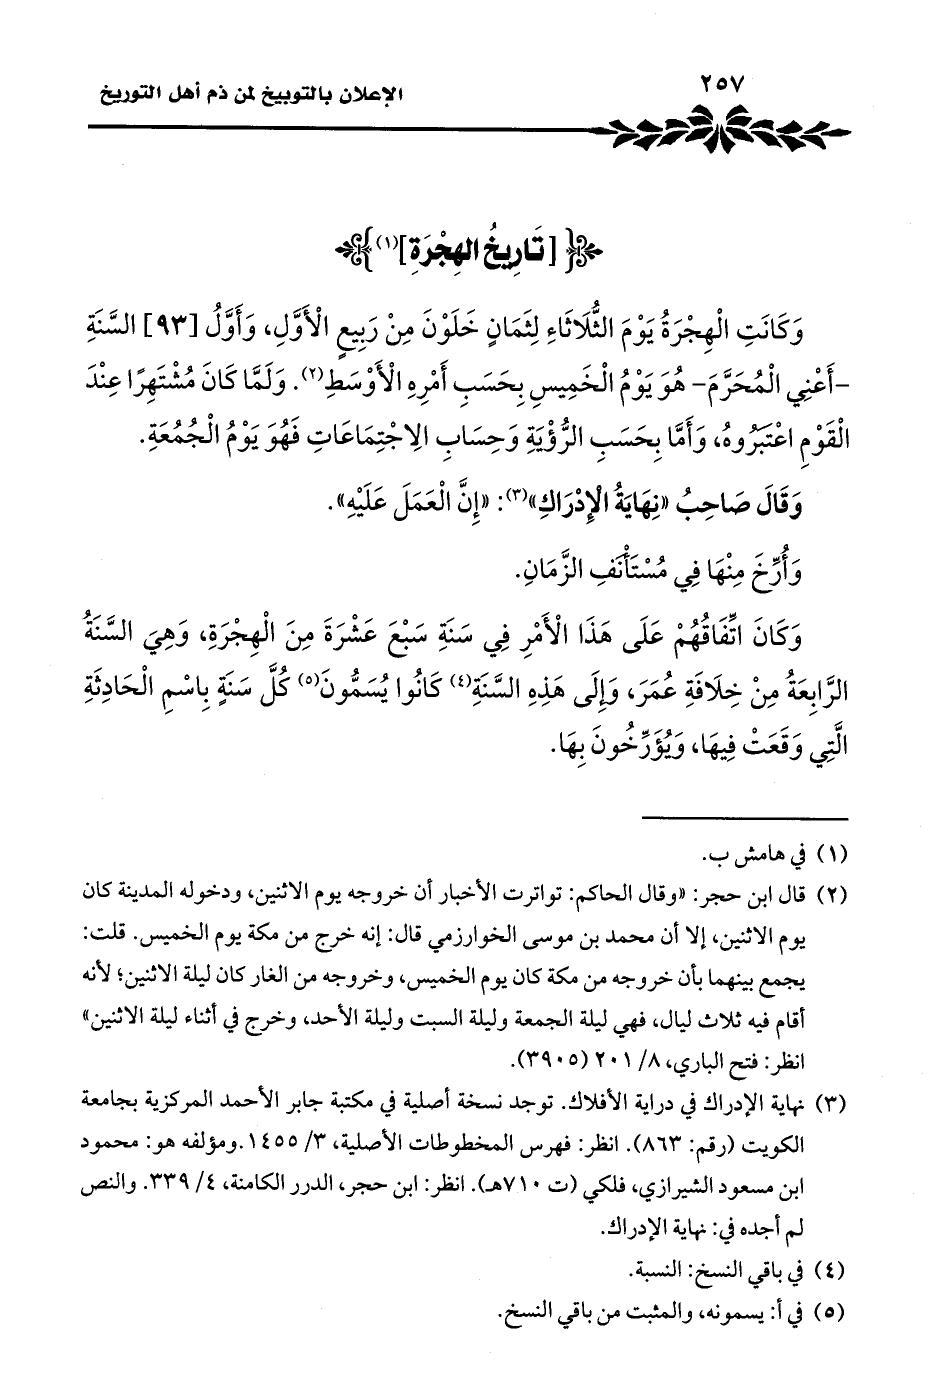 ٢٥٧
الإعلان بالتوبيخ لمن ذم أهل التوريخ
[تَارِيخُ الهِجْرَةِ](١)
وَكَانَتِ الْهِجْرَةُ يَوْمَ الثُّلَاثَاءِ لِثَمَانٍ خَلَوْنَ مِنْ رَبِيعٍ الْأَوَّلِ، وَأَوَّلُ [٩٣] السَّنَةِ
-أَعْنِي الْمُحَرَّمَ- هُوَ يَوْمُ الْخَمِيسِ بِحَسَبِ أَمْرِهِ الْأَوْسَطِ(٢). وَلَمَّا كَانَ مُشْتَهِرًا عِنْدَ
الْقَوْمِ اعْتَبَرُوهُ، وَأَمَّا بِحَسَبِ الرُّؤْيَةِ وَحِسَابِ الِاجْتِمَاعَاتِ فَهُوَ يَوْمُ الْجُمُعَةِ.
وَقَالَ صَاحِبُ «نِهَايَةُ الْإِدْرَاكِ»(٣): «إِنَّ الْعَمَلَ عَلَيْهِ».
وَأُرِّخَ مِنْهَا فِي مُسْتَأْنَفِ الزَّمَانِ.
وَكَانَ اتِّفَاقُهُمْ عَلَى هَذَا الْأَمْرِ فِي سَنَةِ سَبْعَ عَشْرَةَ مِنَ الْهِجْرَةِ، وَهِيَ السَّنَةُ
الرَّابِعَةُ مِنْ خِلَافَةِ عُمَرَ، وَإِلَى هَذِهِ السَّنَةِ(٤) كَانُوا يُسَمُّونَ(٥) كُلَّ سَنَةٍ بِاسْمِ الْحَادِثَةِ
الَّتِي وَقَعَتْ فِيهَا، وَيُؤَرِّخُونَ بِهَا.
(١) في هامش ب.
(٢) قال ابن حجر: «وقال الحاكم: تواترت الأخبار أن خروجه يوم الاثنين، ودخوله المدينة كان
يوم الاثنين، إلا أن محمد بن موسى الخوارزمي قال: إنه خرج من مكة يوم الخميس. قلت:
يجمع بينهما بأن خروجه من مكة كان يوم الخميس، وخروجه من الغار كان ليلة الاثنين؛ لأنه
أقام فيه ثلاث ليال، فهي ليلة الجمعة وليلة السبت وليلة الأحد، وخرج في أثناء ليلة الاثنين»
انظر: فتح الباري، ٨/ ٢٠١ (٣٩٠٥).
(٣) نهاية الإدراك في دراية الأفلاك. توجد نسخة أصلية في مكتبة جابر الأحمد المركزية بجامعة
الكويت (رقم: ٨٦٣). انظر: فهرس المخطوطات الأصلية، ٣/ ١٤٥٥.ومؤلفه هو: محمود
ابن مسعود الشيرازي، فلكي (ت ٧١٠هـ). انظر: ابن حجر، الدرر الكامنة، ٤/ ٣٣٩. والنص
لم أجده في: نهاية الإدراك.
(٤) في باقي النسخ: النسبة.
(٥) في أ: يسمونه، والمثبت من باقي النسخ.